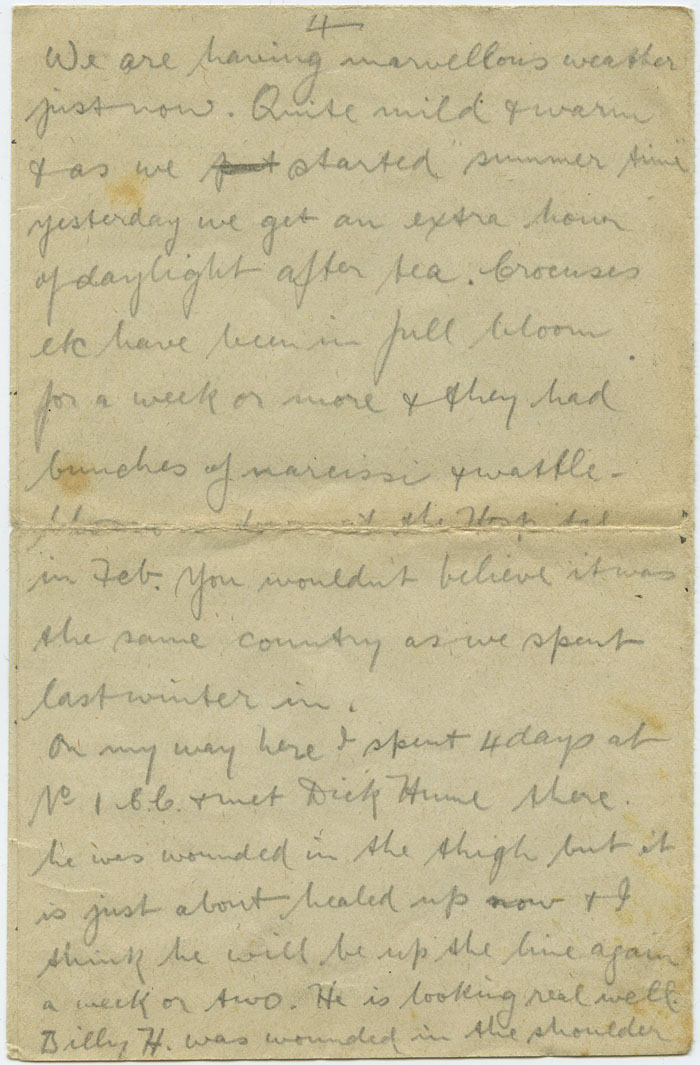 4
We are having marvellous weather
just now. Quite mild & warm
& as we put started "summer time"
yesterday we get an extra hour
of daylight after tea. Crocuses
etc have been in full bloom
for a week or more & they had
bunches of narcissi & wattle-
at the Hospital
in Feb. You wouldn't believe it was
the same country as we spent
last winter in.
On my way here I spent 4 days at
No 1 C.C. & met Dick Hume there.
he was wounded in the thigh but it
is just about healed up now & I
think he will be up the line again
a week or two. He is looking real well.
Billy H. was wounded in the shoulder